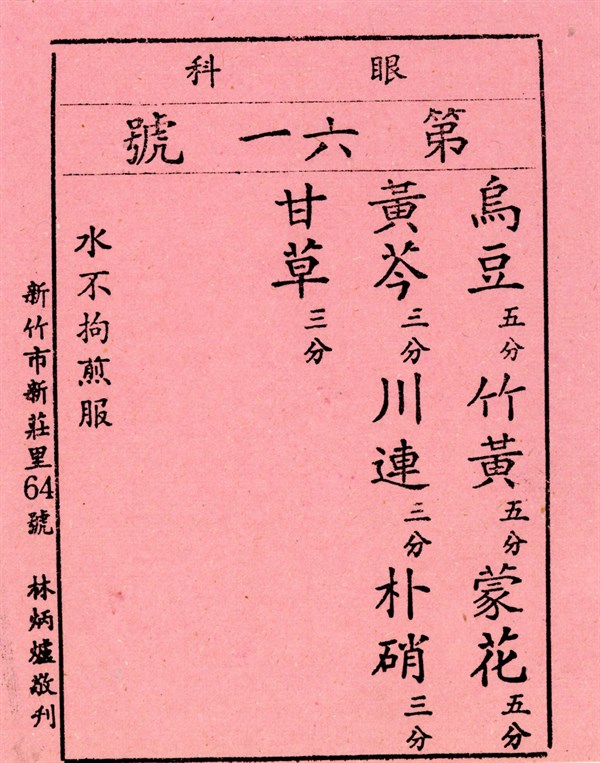 眼科
第六一號
烏豆五分竹黃五分蒙花五分
黃芩三分川連三分朴硝三分
甘草三分
水不拘煎服
新竹市新莊里64號 林炳爐敬刋